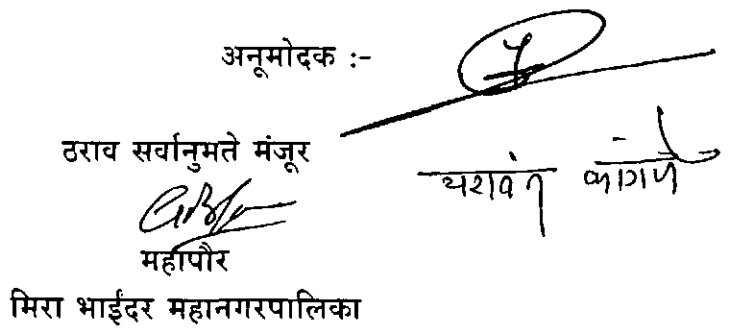 अनूमोदक :-
ठराव सर्वानुमते मंजूर
यशवंत
महापौर
मिरा भाईंदर महानगरपालिका